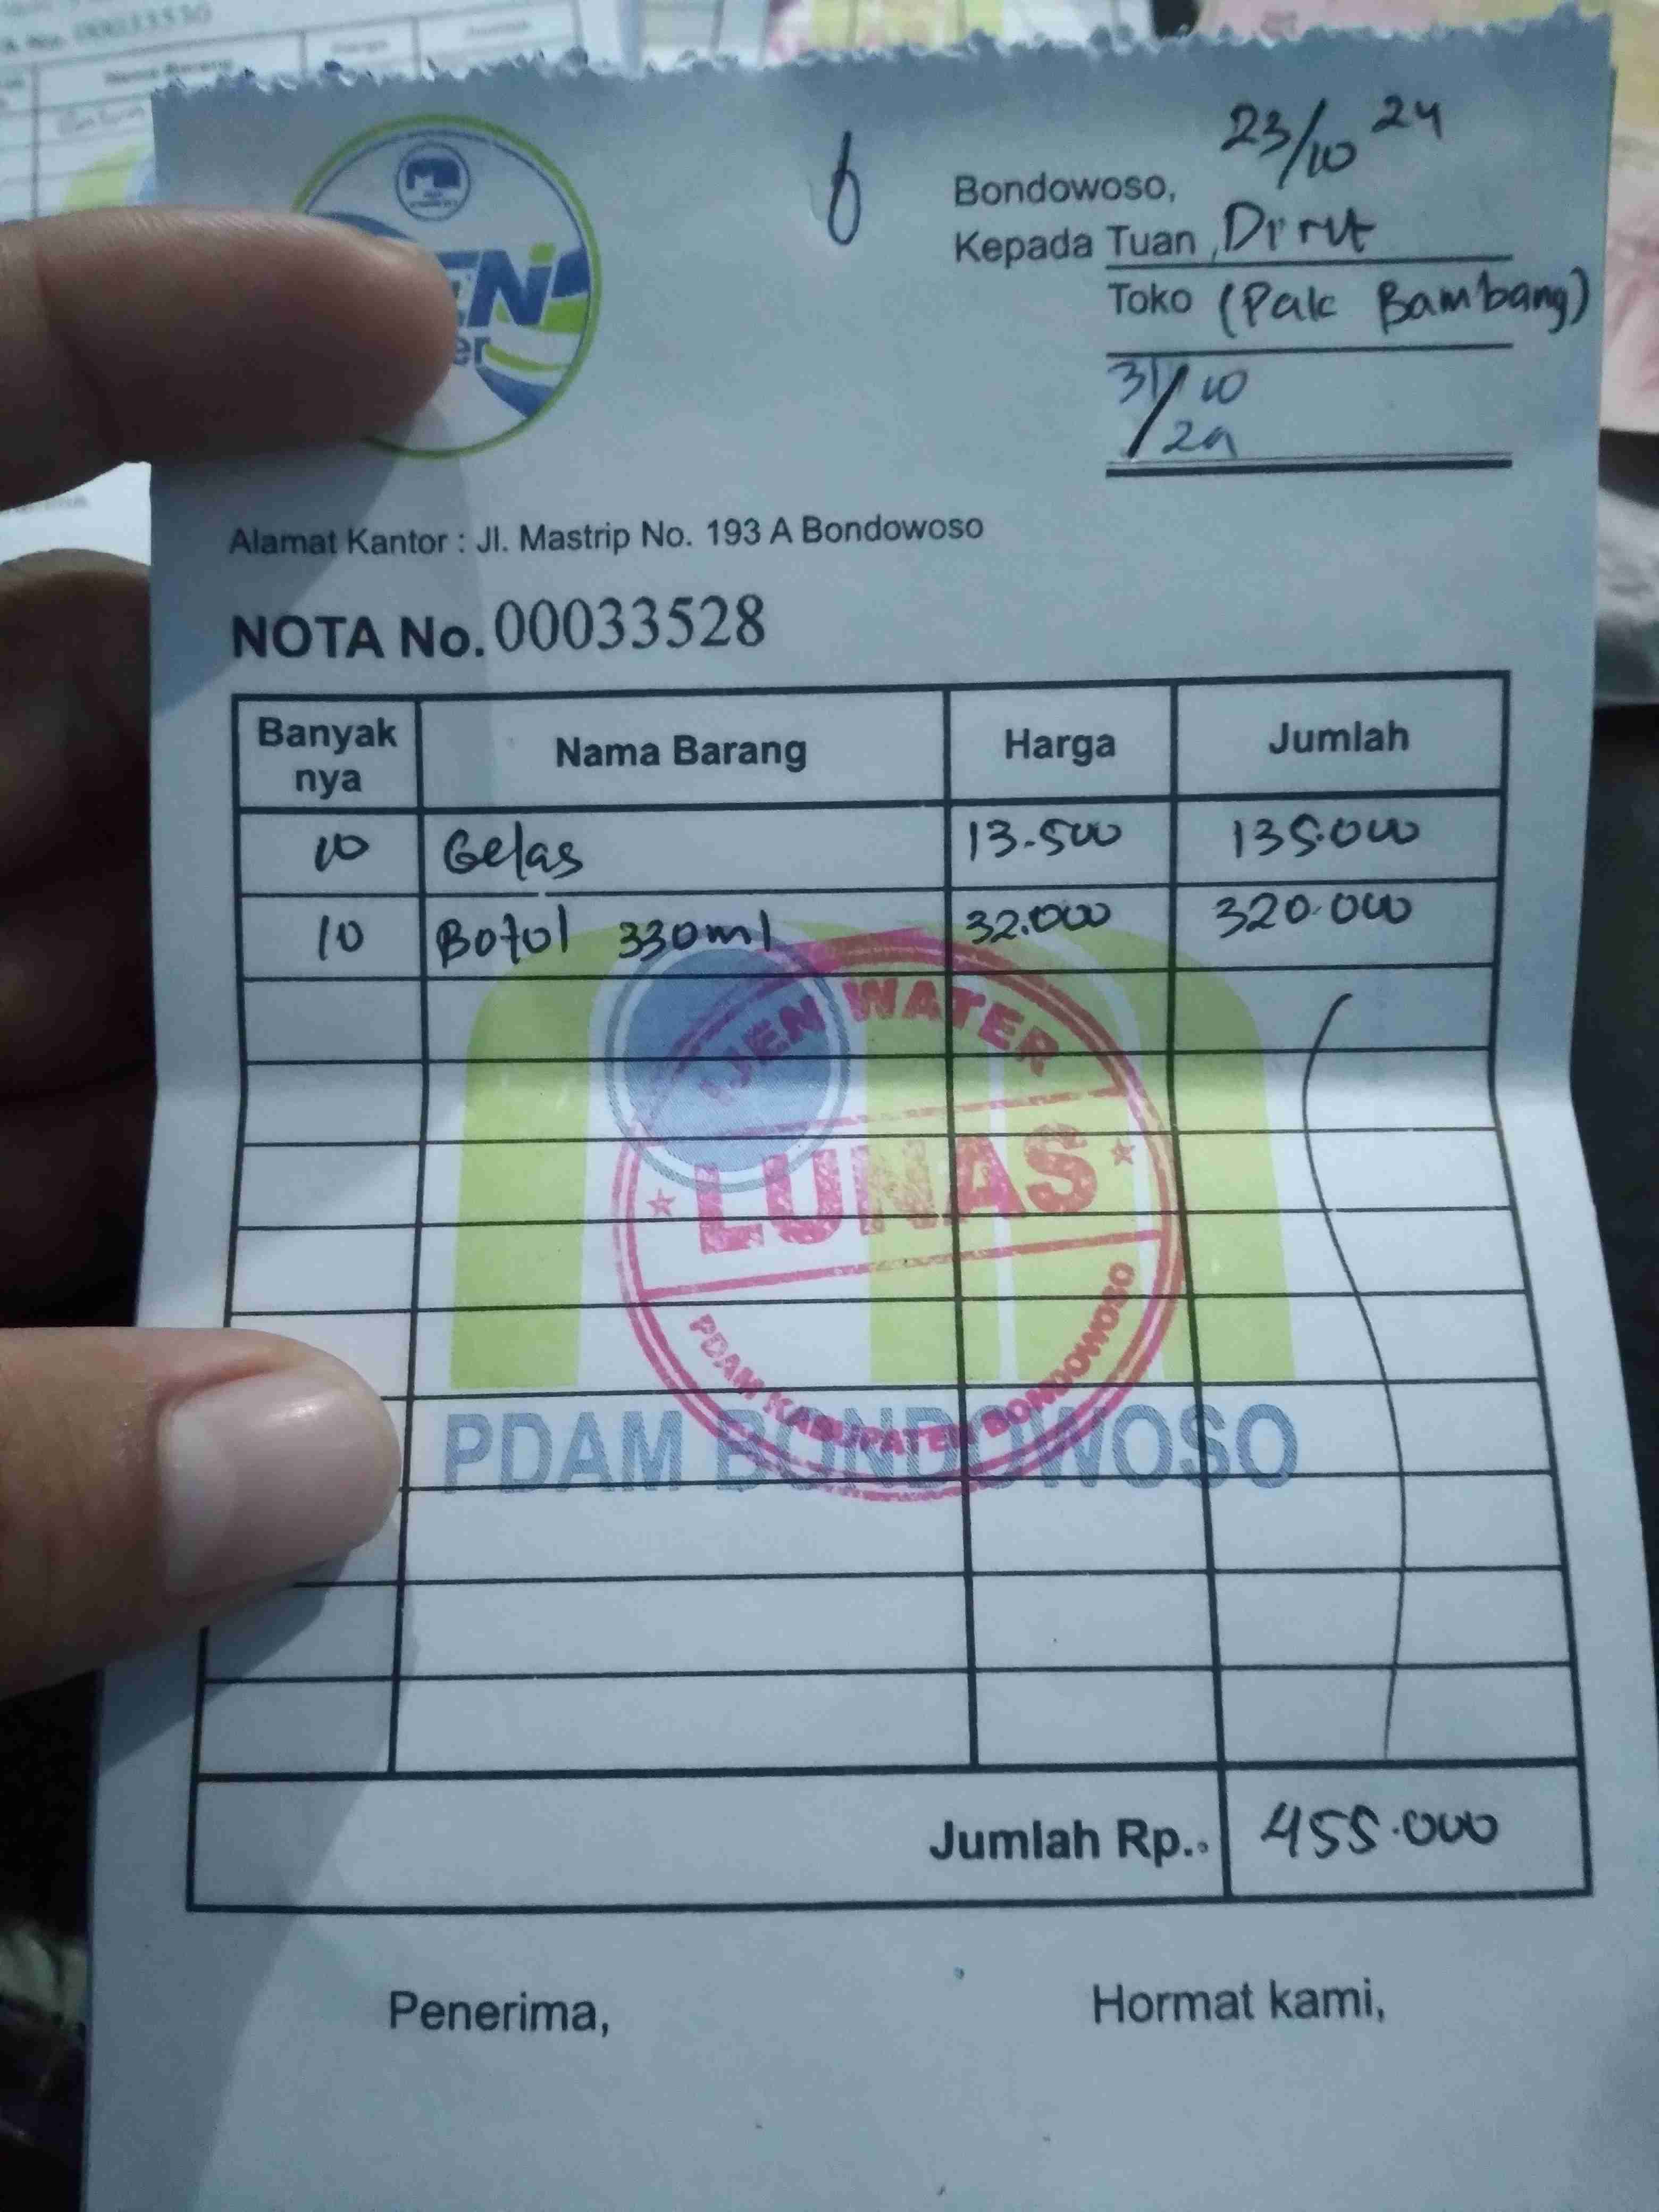 EN
er
23/10 24
Bondowoso,
Kepada Tuan Dirut
Toko (Pak Bambang)
31/10
24
Alamat Kantor : Jl. Mastrip No. 193 A Bondowoso
NOTA No. 00033528
Banyak nya Nama Barang Harga Jumlah
10 Gelas 13.500 135.000
10 Botol 330ml 32.000 320.000
IJEN WATER
LUNAS
PDAM KABUPATEN BONDOWOSO
PDAM BONDOWOSO
Jumlah Rp.. 455.000
Penerima, Hormat kami,